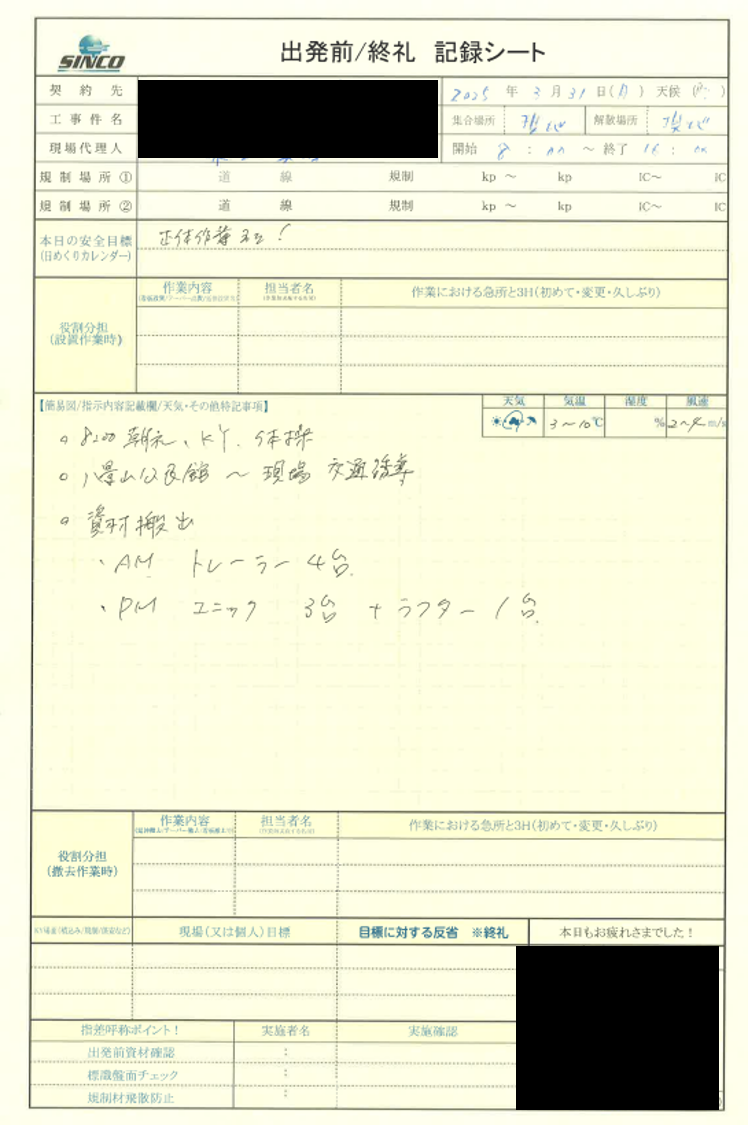 SINCO
出発前/終礼 記録シート
契約先
2025 年 3 月 31 日(月) 天候( )
工事件名
集合場所 現地 解散場所 現地
現場代理人
開始 8 : 00 ～ 終了 16 : 00
規制場所① 道 線 規制 kp ～ kp IC～ IC
規制場所② 道 線 規制 kp ～ kp IC～ IC
本日の安全目標
(日めくりカレンダー)
作業内容 担当者名 作業における急所と3H(初めて・変更・久しぶり)
役割分担
(設置作業時)
【簡易図/指示内容記載欄/天気・その他特記事項】
天気 気温 湿度 風速
3～10℃ % 2～4 m/s
8:00 朝礼、KY、体操
八景山公民館 ～ 現場 交通誘導
資材搬出
・AM トレーラー 4台
・PM ユニック 3台 + ラフター 1台
作業内容 担当者名 作業における急所と3H(初めて・変更・久しぶり)
役割分担
(撤去作業時)
現場(又は個人)目標 目標に対する反省 ※終礼 本日もお疲れさまでした！
指差呼称ポイント！ 実施者名 実施確認
出発前資材確認 :
標識盤面チェック :
規制材飛散防止 :